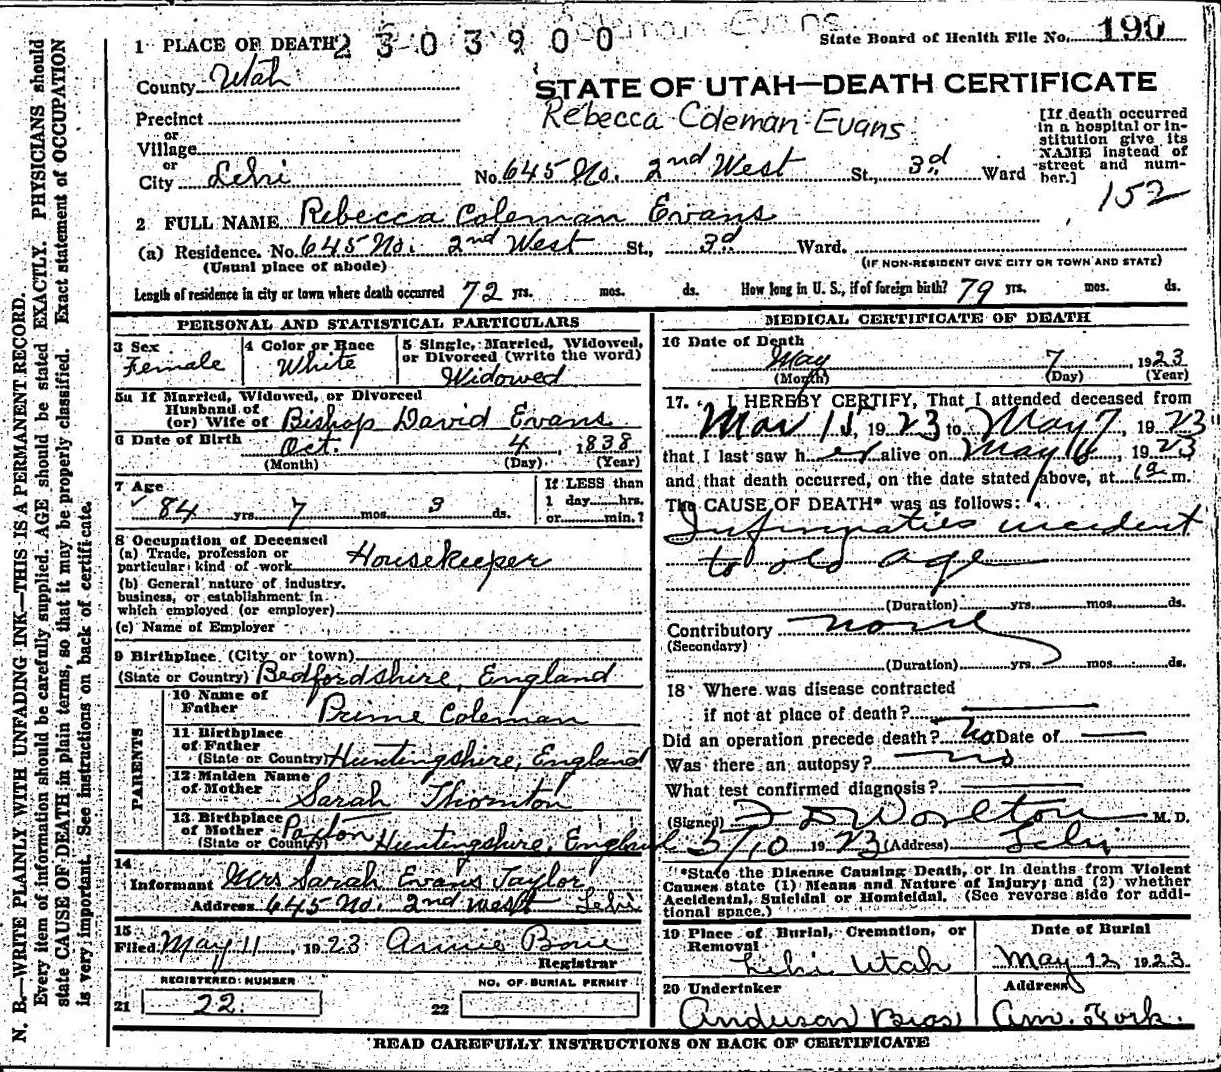 Coleman Evans
2303900
State Board of Health File No. 190
1 PLACE OF DEATH
County Utah
STATE OF UTAH—DEATH CERTIFICATE
Rebecca Coleman Evans
Precinct
or
Village
or
City Lehi
No. 645 No. 2nd West St., 3d Ward
[If death occurred
in a hospital or in-
stitution give its
NAME instead of
street and num-
ber.]
152
2 FULL NAME Rebecca Coleman Evans
(a) Residence. No. 645 No. 2nd West St., 3d Ward.
(Usual place of abode)
(IF NON-RESIDENT GIVE CITY OR TOWN AND STATE)
Length of residence in city or town where death occurred 72 yrs. mos. ds. How long in U. S., if of foreign birth? 79 yrs. mos. ds.
PERSONAL AND STATISTICAL PARTICULARS
3 Sex
Female
4 Color or Race
White
5 Single, Married, Widowed,
or Divorced (write the word)
Widowed
5a If Married, Widowed, or Divorced
Husband of
(or) Wife of Bishop David Evans
6 Date of Birth
Oct. 4, 1838
(Month) (Day) (Year)
7 Age
84 yrs. 7 mos. 3 ds.
If LESS than
1 day hrs.
or min.?
8 Occupation of Deceased
(a) Trade, profession or
particular kind of work Housekeeper
(b) General nature of industry,
business, or establishment in
which employed (or employer)
(c) Name of Employer
9 Birthplace (City or town)
(State or Country) Bedfordshire, England
PARENTS
10 Name of
Father Prime Coleman
11 Birthplace
of Father
(State or Country) Huntingshire, England
12 Maiden Name
of Mother Sarah Thornton
13 Birthplace
of Mother
(State or Country) Paxton Huntingshire, England
14
Informant Mrs Sarah Evans Taylor
Address 645 No. 2nd West Lehi
15
Filed May 11, 1923 Annie Bone
Registrar
REGISTERED NUMBER
21 22.
NO. OF BURIAL PERMIT
22
MEDICAL CERTIFICATE OF DEATH
16 Date of Death
May 7 1923
(Month) (Day) (Year)
17. I HEREBY CERTIFY, That I attended deceased from
Mar 15, 1923 to May 7, 1923
that I last saw her alive on May 6, 1923
and that death occurred, on the date stated above, at 1a m.
The CAUSE OF DEATH* was as follows:
Infirmaties incident
to old age
(Duration) yrs. mos. ds.
Contributory none
(Secondary)
(Duration) yrs. mos. ds.
18 Where was disease contracted
if not at place of death?
Did an operation precede death? No Date of
Was there an autopsy? no
What test confirmed diagnosis?
(Signed) F D Worlton M. D.
5/10 1923 (Address) Lehi
*State the Disease Causing Death, or in deaths from Violent
Causes state (1) Means and Nature of Injury; and (2) whether
Accidental, Suicidal or Homicidal. (See reverse side for addi-
tional space.)
19 Place of Burial, Cremation, or
Removal
Lehi Utah
Date of Burial
May 12 1923
20 Undertaker
Anderson Bros
Address
Am. Fork.
READ CAREFULLY INSTRUCTIONS ON BACK OF CERTIFICATE
N. B.—WRITE PLAINLY WITH UNFADING INK—THIS IS A PERMANENT RECORD.
Every item of information should be carefully supplied. AGE should be stated EXACTLY. PHYSICIANS should
state CAUSE OF DEATH in plain terms, so that it may be properly classified. Exact statement of OCCUPATION
is very important. See instructions on back of certificate.